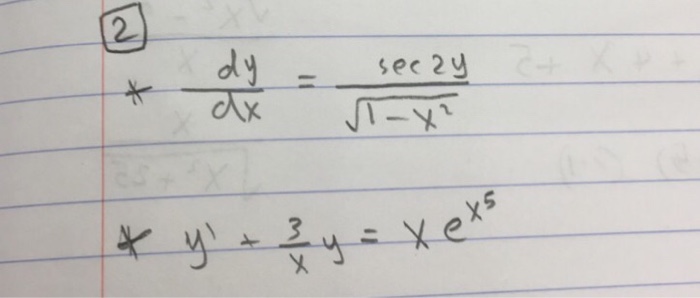 2
* dy/dx = sec2y/√(1-x²)
* y' + 3/x y = x e^x⁵